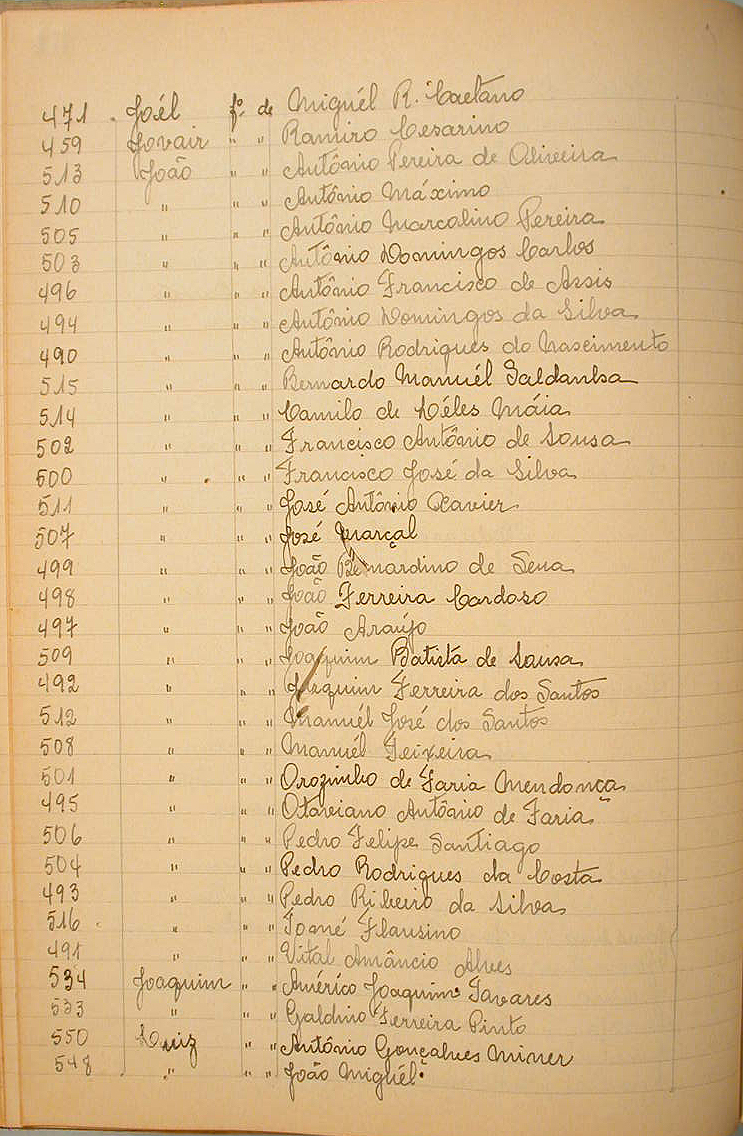 471 Joél fº de Miguél R. Caetano
459 Jovair " " Ramiro Cesarino
513 João " " Antônio Pereira de Oliveira
510 " " " Antônio Máximo
505 " " " Antônio Marcolino Pereira
503 " " " Antônio Domingos Carlos
496 " " " Antônio Francisco de Assis
494 " " " Antônio Domingos da Silva
490 " " " Antônio Rodrigues do Nascimento
515 " " " Bernardo Manuél Saldanha
514 " " " Camilo de Léles Máia
502 " " " Francisco Antônio de Sousa
500 " " " Francisco José da Silva
511 " " " José Antônio Xavier
507 " " " José Marçal
499 " " " João Bernardino de Sena
498 " " " João Ferreira Cardoso
497 " " " João Araújo
509 " " " Joaquim Batista de Sousa
492 " " " Joaquim Ferreira dos Santos
512 " " " Manuél José dos Santos
508 " " " Manuél Teixeira
501 " " " Orozimbo de Faria Mendonça
495 " " " Otaviano Antônio de Faria
506 " " " Pedro Felipe Santiago
504 " " " Pedro Rodrigues da Costa
493 " " " Pedro Ribeiro da Silva
516 " " " Tomé Flausino
491 " " " Vital Amâncio Alves
534 Joaquim " " Américo Joaquim Tavares
533 " " " Galdino Ferreira Pinto
550 Luiz " " Antônio Gonçalves Miner
548 " " " João Miguél